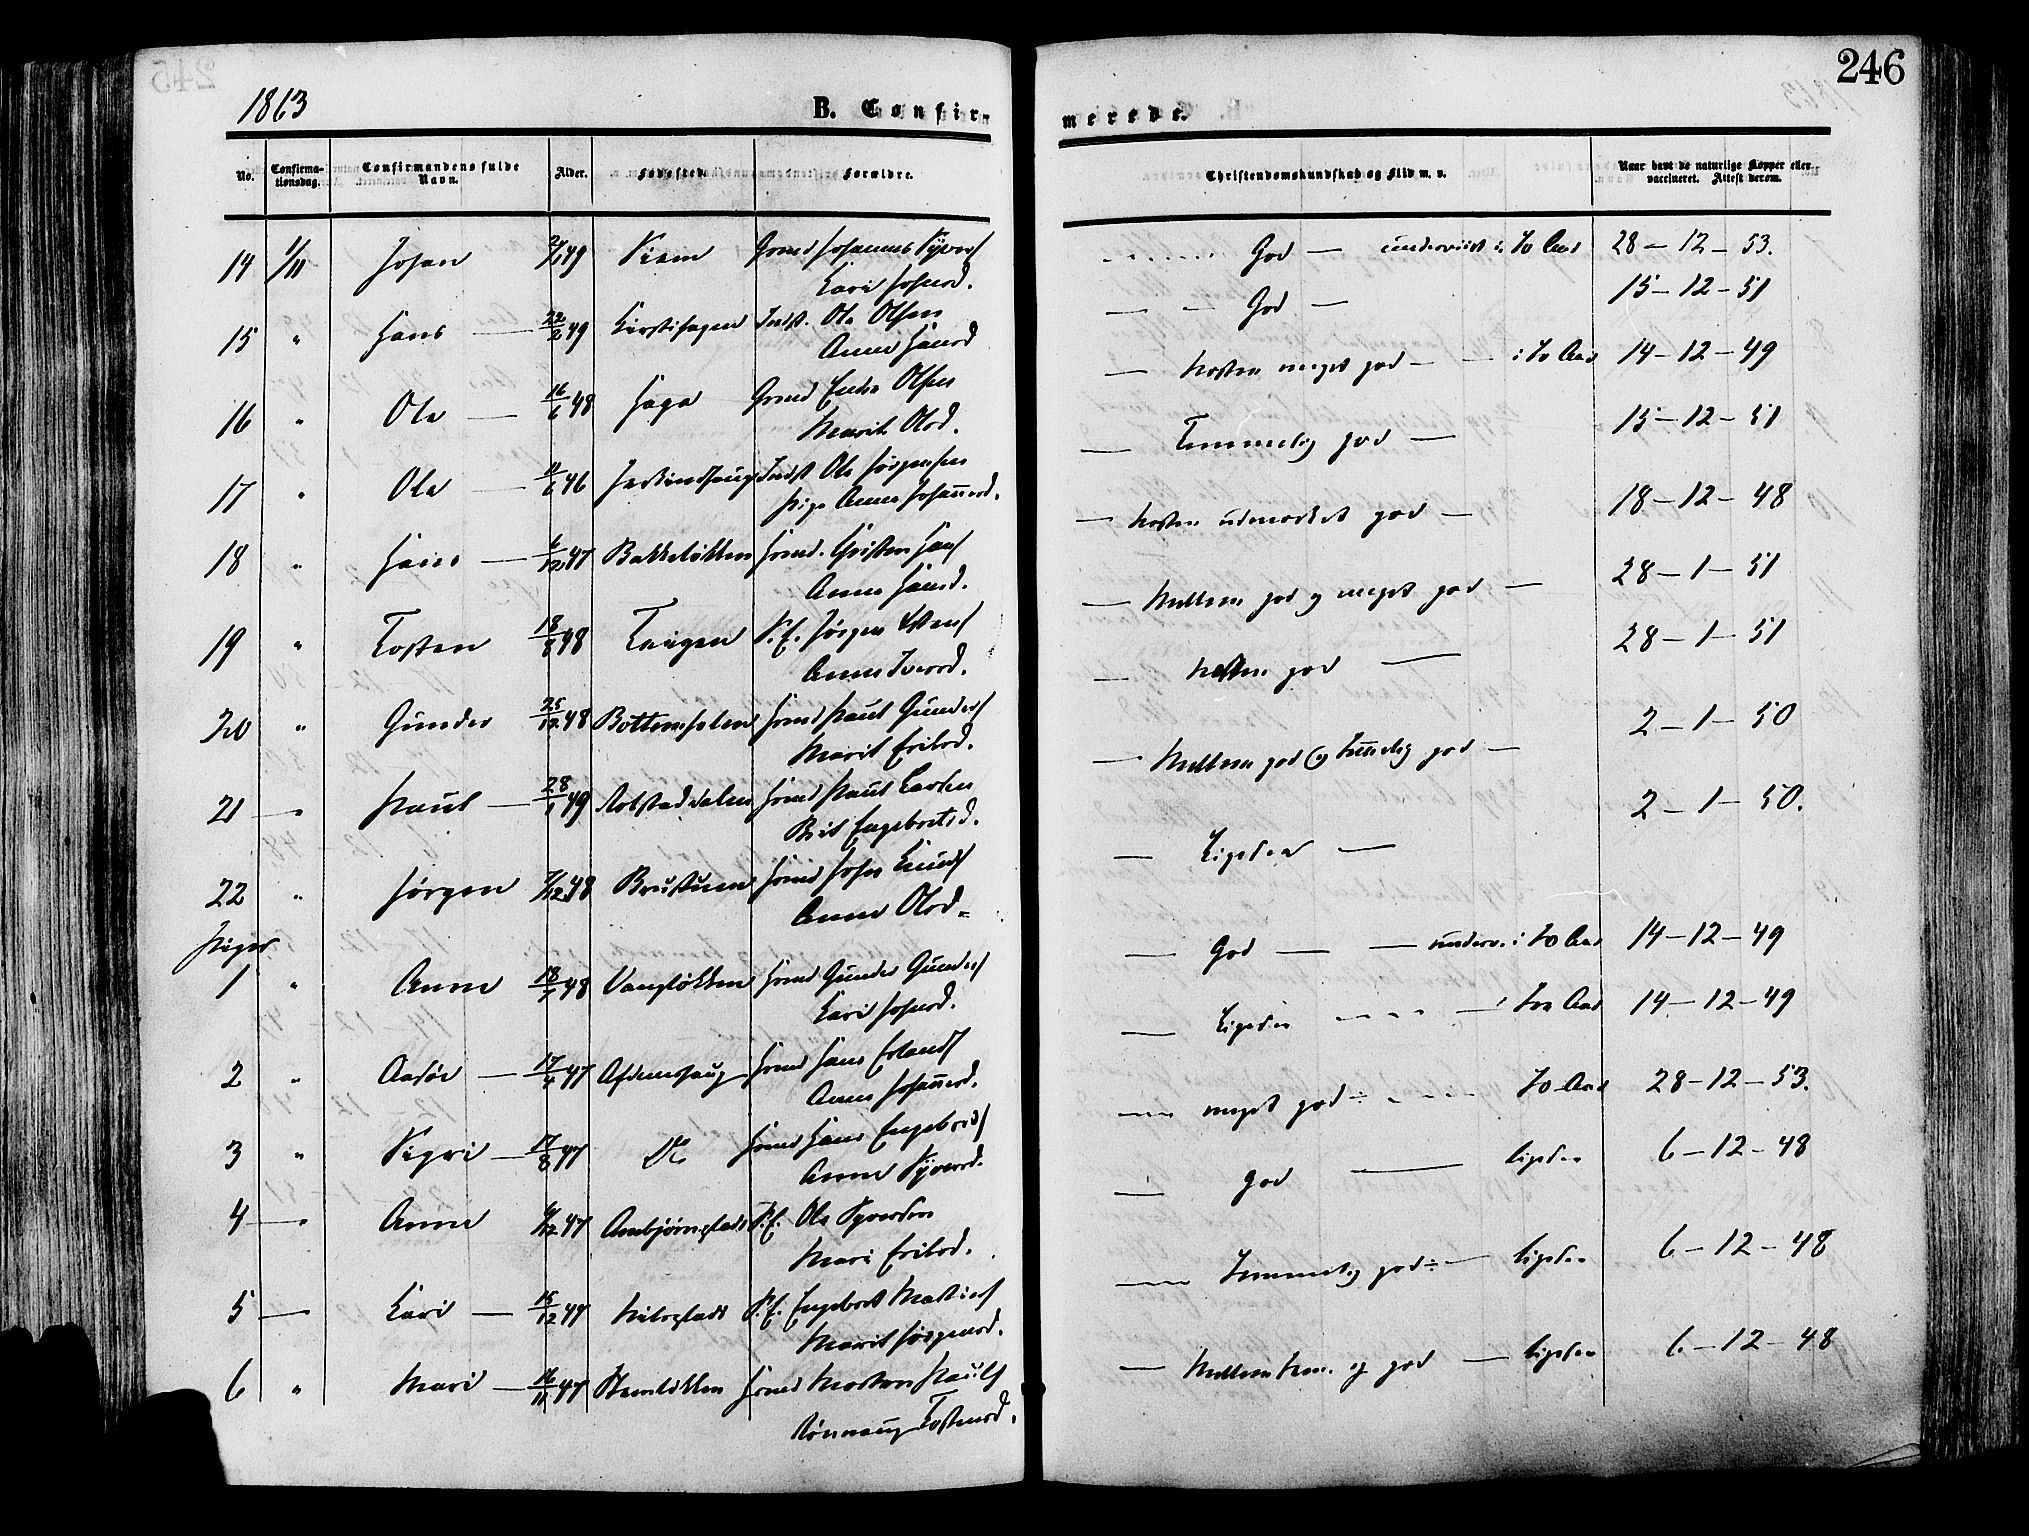 246
1863
B. Confir-
merede.
No.
Confirma-
tionsdag.
Confirmandens fulde
Navn.
Alder.
Fødested.
Forældre.
Christendomskundskab og Flid m. v.
Naar havt de naturlige Kopper eller
vaccineret. Attest derom.
14 1/11 Johan 49 Grmd Johannes Syvers
Kari Johnsd.
God — undervist i to Aar 28–12–53.
15 " Hans — 22/2 49 Kirstihagen Indst. Ole Olsen
Anne Hansd
— — God — 15–12–51
16 " Ole — 16/6 48 Haga Grmd Endre Olsen
Marit Olsd.
— næsten meget god — — i to Aar 14–12–49
17 " Ole — 11/6 46 Indst Ole Jørgensen
Pige Anne Johannesd.
— Temmelig god — 15–12–51
18 " Hans — 6/12 47 Bakkeløkken Husmd. Christen Hans
Anne Hansd.
— næsten udmærket god — 18–12–48
19 " Tosten 18/8 48 S. E. Jørgen
Anne Iversd.
— Mellem god og meget god — 28–1–51
20 " Gunder 25/12 48 Husmd Paul Gunders
Marit Eriksd.
— næsten god — 28–1–51
21 — Paul — 28/1 49 Rolstaddalen Husmd Paul Larsen
Brit Engebretsd.
— Mellem god og temmelig god — 2–1–50
22 " Jørgen 7/12 48 Brustuen Husmd John Knuds
Anne Olsd.
— Ligesaa — 2–1–50.
Piger
1 " Anne 18/7 48 Vangløkken Husmd Gunder Gunders
Kari Johnsd.
— God — — underv. i to Aar 14–12–49
2 " — 17/4 47 Husmd Hans Erlands
Anne Johannesd.
— Ligesaa — i to Aar 14–12–49
3 " Sigri — 17/8 47 Do Husmd Hans Engebrets
Anne Syversd.
— meget god ÷ to Aar 28–12–53.
4 — Anne 12 47 Ambjørnstads S. E. Ole Syversen
Mari Eriksd.
— god — ligesaa 6–12–48
5 — Kari — 15/12 47 S. E. Engebret Mathias
Marit Jørgensd.
— Temmelig god ÷ — ligesaa 6–12–48
6 " Mari — 16/11 47 Husmd Morten Pauls
Rønnaug Tostensd.
— Mellem tem. og god — ligesaa 6–12–48